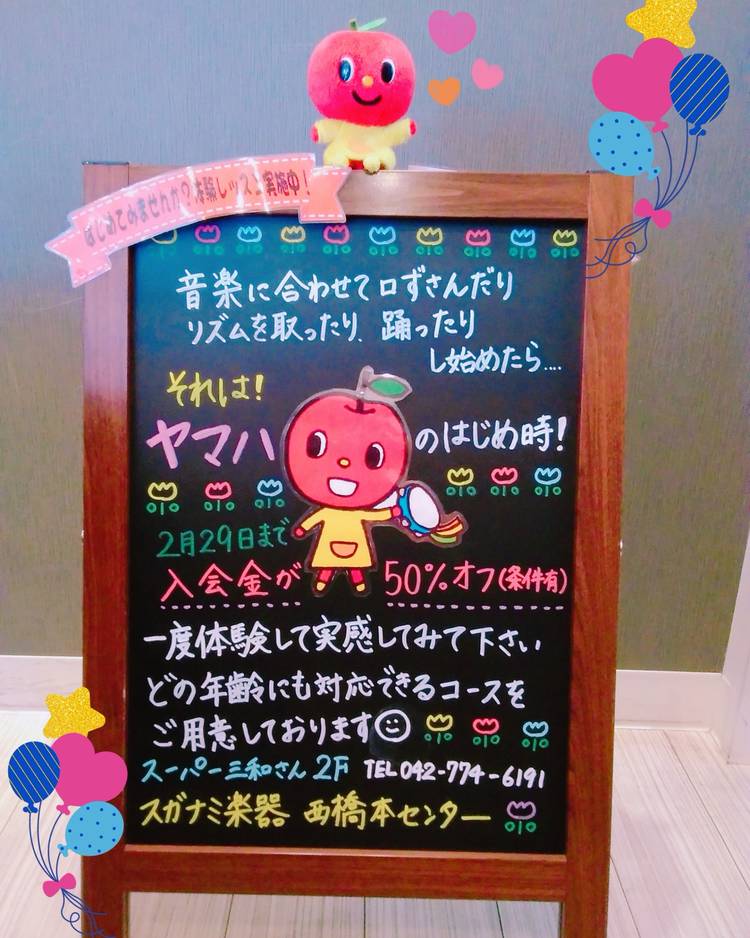 はじめてみませんか?体験レッスン実施中!
音楽に合わせて口ずさんだり
リズムを取ったり、踊ったり
し始めたら....
それは!
ヤマハのはじめ時!
2月29日まで
入会金が50%オフ(条件有)
一度体験して実感してみて下さい
どの年齢にも対応できるコースを
ご用意しております
スーパー三和さん 2F TEL 042-774-6191
スガナミ楽器 西橋本センター